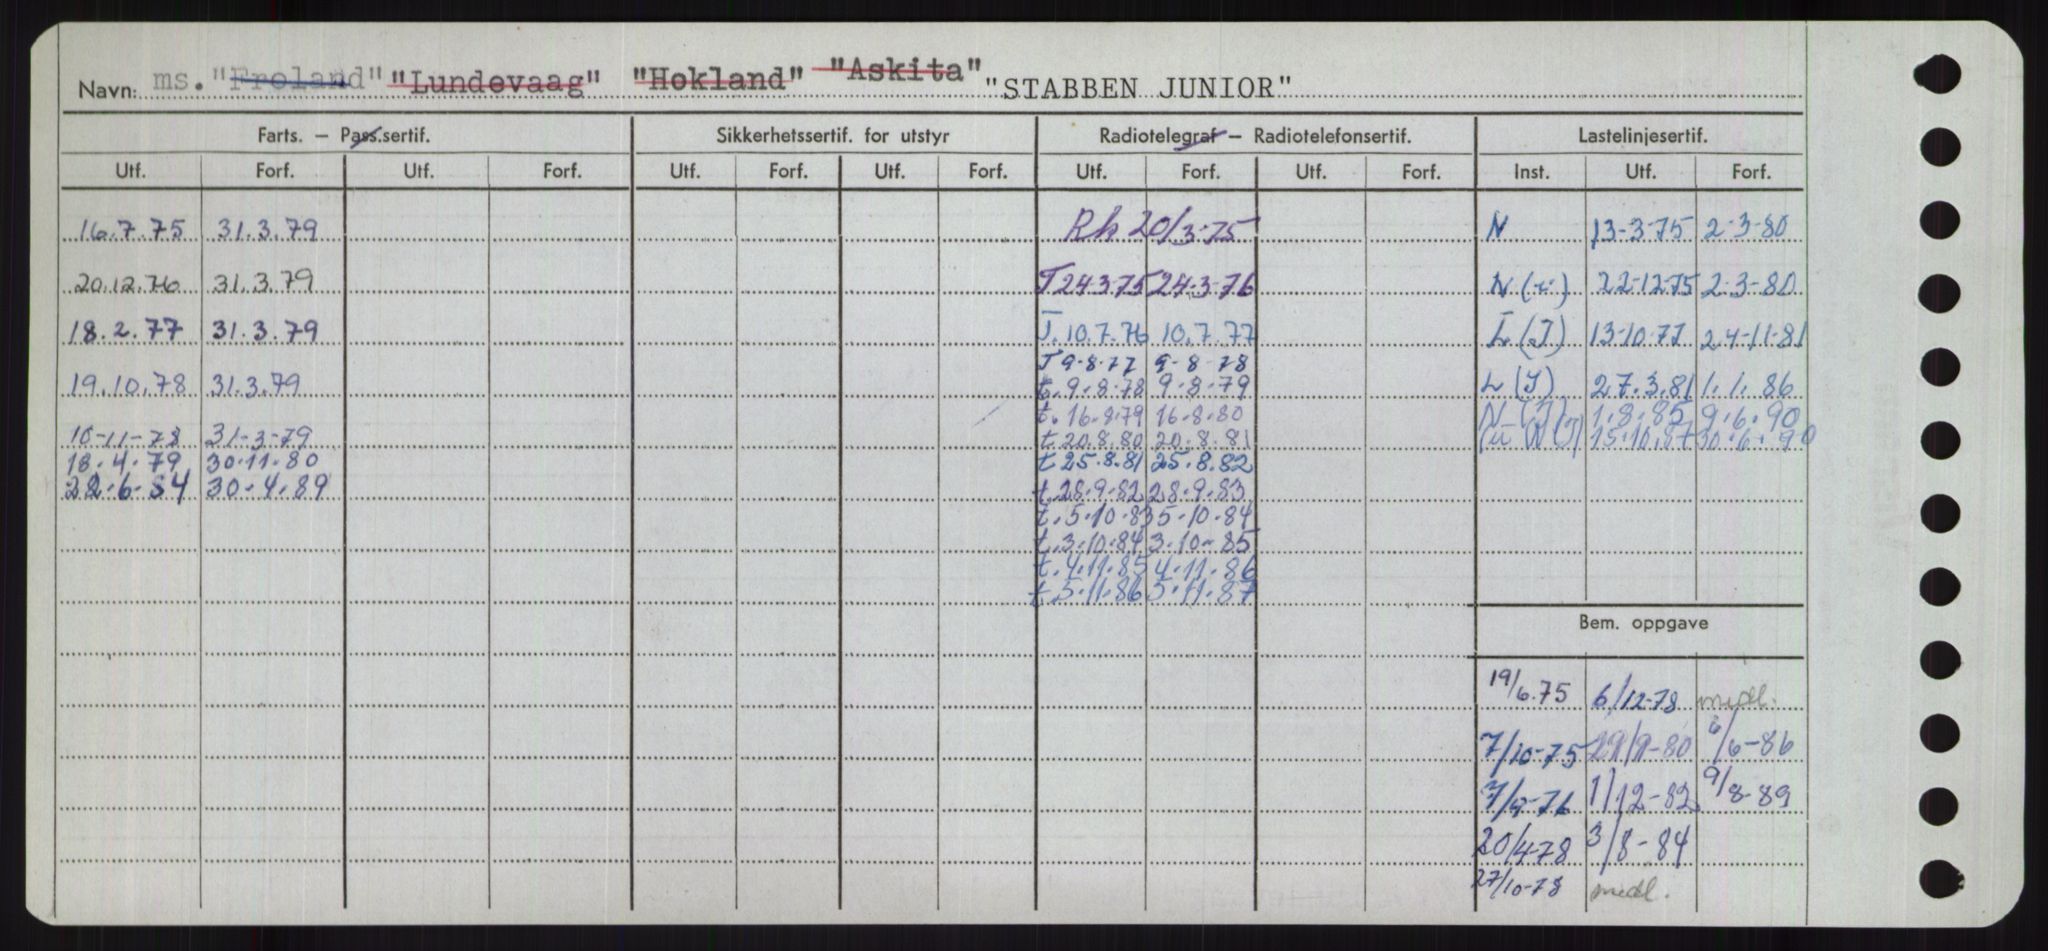 Navn: ms. "Froland" "Lundevaag" "Hokland" "Askita" "STABBEN JUNIOR"
Farts. — Pass.sertif. Sikkerhetssertif. for utstyr Radiotelegraf — Radiotelefonsertif. Lastelinjesertif.
Utf. Forf. Utf. Forf. Utf. Forf. Utf. Forf. Utf. Forf. Utf. Forf. Inst. Utf. Forf.
16.7.75 31.3.79 Rk 20/3-75 N 13-3-75 2-3-80
20.12.76 31.3.79 T 24-3-75 24-3-76 N (u) 22-12-75 2-3-80
18.2.77 31.3.79 T. 10.7.76 10.7.77 L (J) 13-10-77 24-11-81
T 9-8-77 9-8-78
19.10.78 31.3.79 t. 9.8.78 9.8.79 L (J) 27.3.81 1.1.86
t. 16.8.79 16.8.80 N (J) 1.8.85 9.6.90
10-11-78 31-3-79 t 20.8.80 20.8.81 (u N (J) 15.10.87 30.6.90
18.4.79 30.11.80 t 25.8.81 25.8.82
22.6.84 30.4.89 t. 28.9.82 28.9.83
t. 5.10.83 5.10.84
t. 3.10.84 3.10-85
t. 4.11.85 4.11.86
t. 5.11.86 5.11.87
Bem. oppgave
19/6.75 6/12-78 medl.
7/10-75 29/9-80 6/6-86
7/9-76 1/12-82 9/8-89
20/4-78 3/8-84
27/10-78 medl.